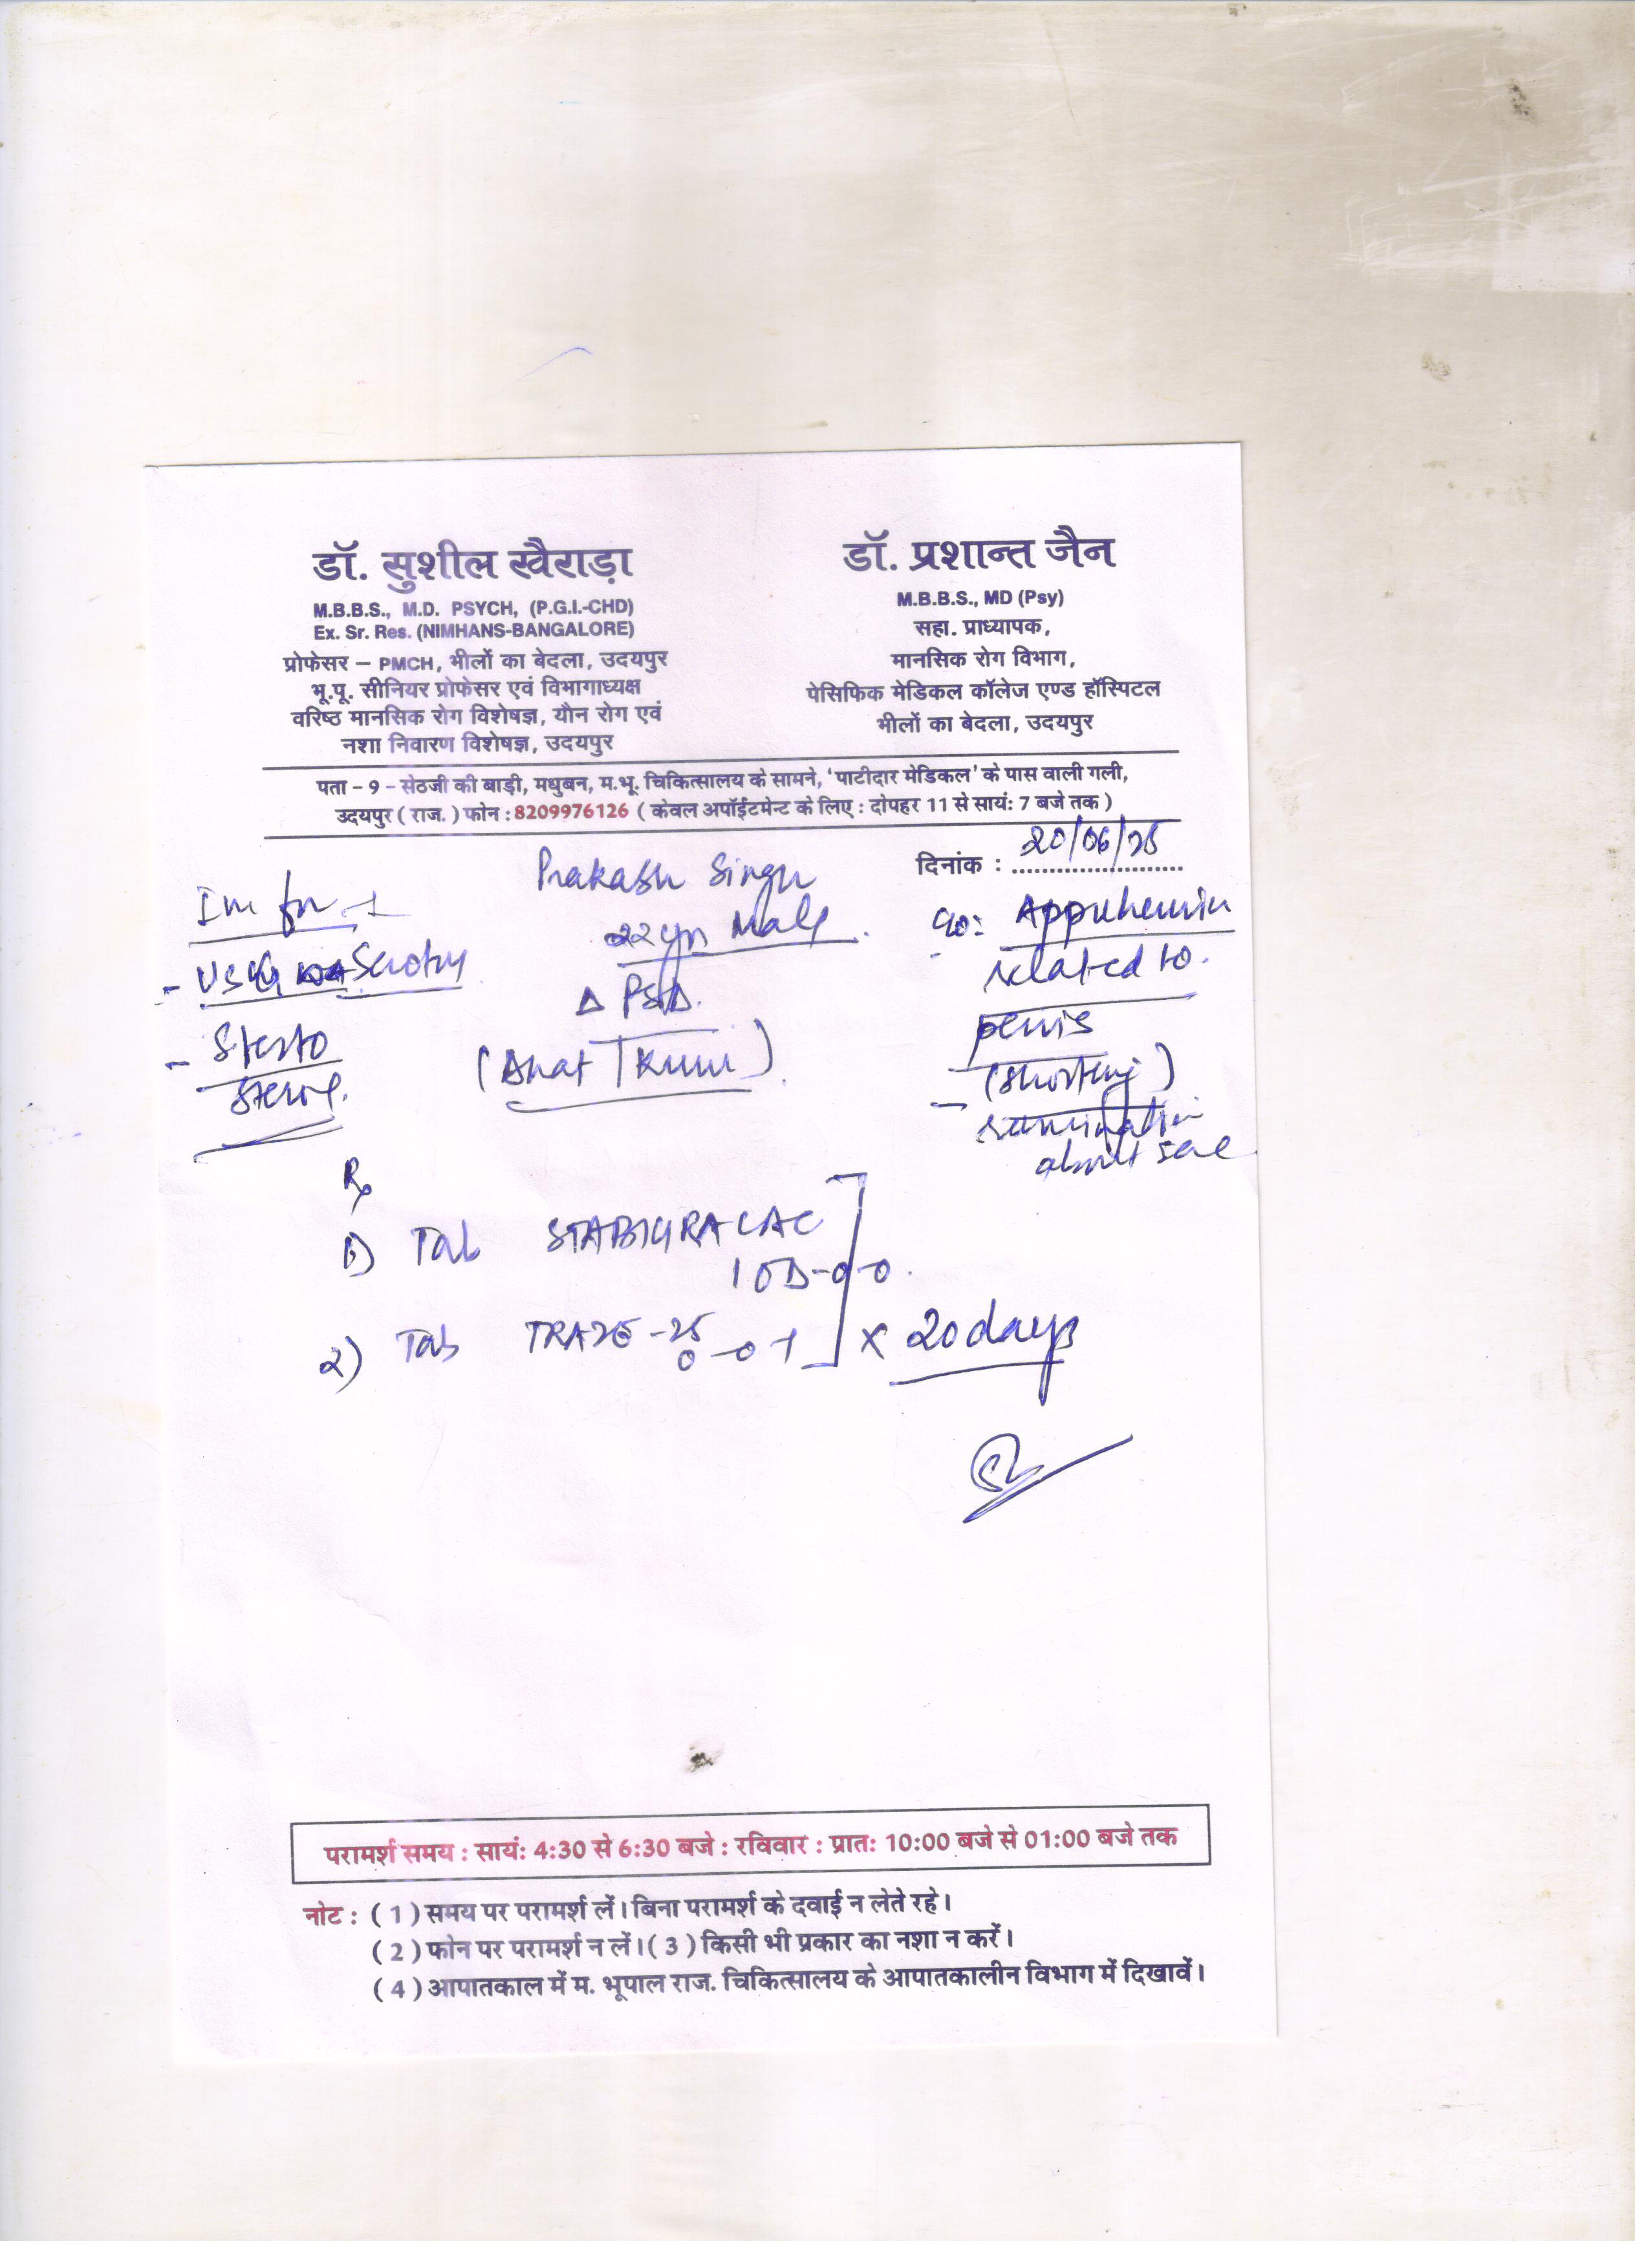 डॉ. सुशील खैराड़ा
M.B.B.S., M.D. PSYCH, (P.G.I.-CHD)
Ex. Sr. Res. (NIMHANS-BANGALORE)
प्रोफेसर – PMCH, भीलों का बेदला, उदयपुर
भू.पू. सीनियर प्रोफेसर एवं विभागाध्यक्ष
वरिष्ठ मानसिक रोग विशेषज्ञ, यौन रोग एवं
नशा निवारण विशेषज्ञ, उदयपुर
डॉ. प्रशान्त जैन
M.B.B.S., MD (Psy)
सहा. प्राध्यापक,
मानसिक रोग विभाग,
पेसिफिक मेडिकल कॉलेज एण्ड हॉस्पिटल
भीलों का बेदला, उदयपुर
पता – 9 – सेठजी की बाड़ी, मधुबन, म.भू. चिकित्सालय के सामने, 'पाटीदार मेडिकल' के पास वाली गली,
उदयपुर ( राज. ) फोन : 8209976126 ( केवल अपॉईंटमेन्ट के लिए : दोपहर 11 से सायं: 7 बजे तक )
दिनांक : 20/06/25
Prakash Singh
22 yr Male
Δ
(Dhat
- USG
related to
penis
about
Rx
1) Tab
2) Tab TRAZE-25
0-0-1
x 20 days
परामर्श समय : सायं: 4:30 से 6:30 बजे : रविवार : प्रात: 10:00 बजे से 01:00 बजे तक
नोट : ( 1 ) समय पर परामर्श लें। बिना परामर्श के दवाई न लेते रहे।
( 2 ) फोन पर परामर्श न लें। ( 3 ) किसी भी प्रकार का नशा न करें।
( 4 ) आपातकाल में म. भूपाल राज. चिकित्सालय के आपातकालीन विभाग में दिखावें।